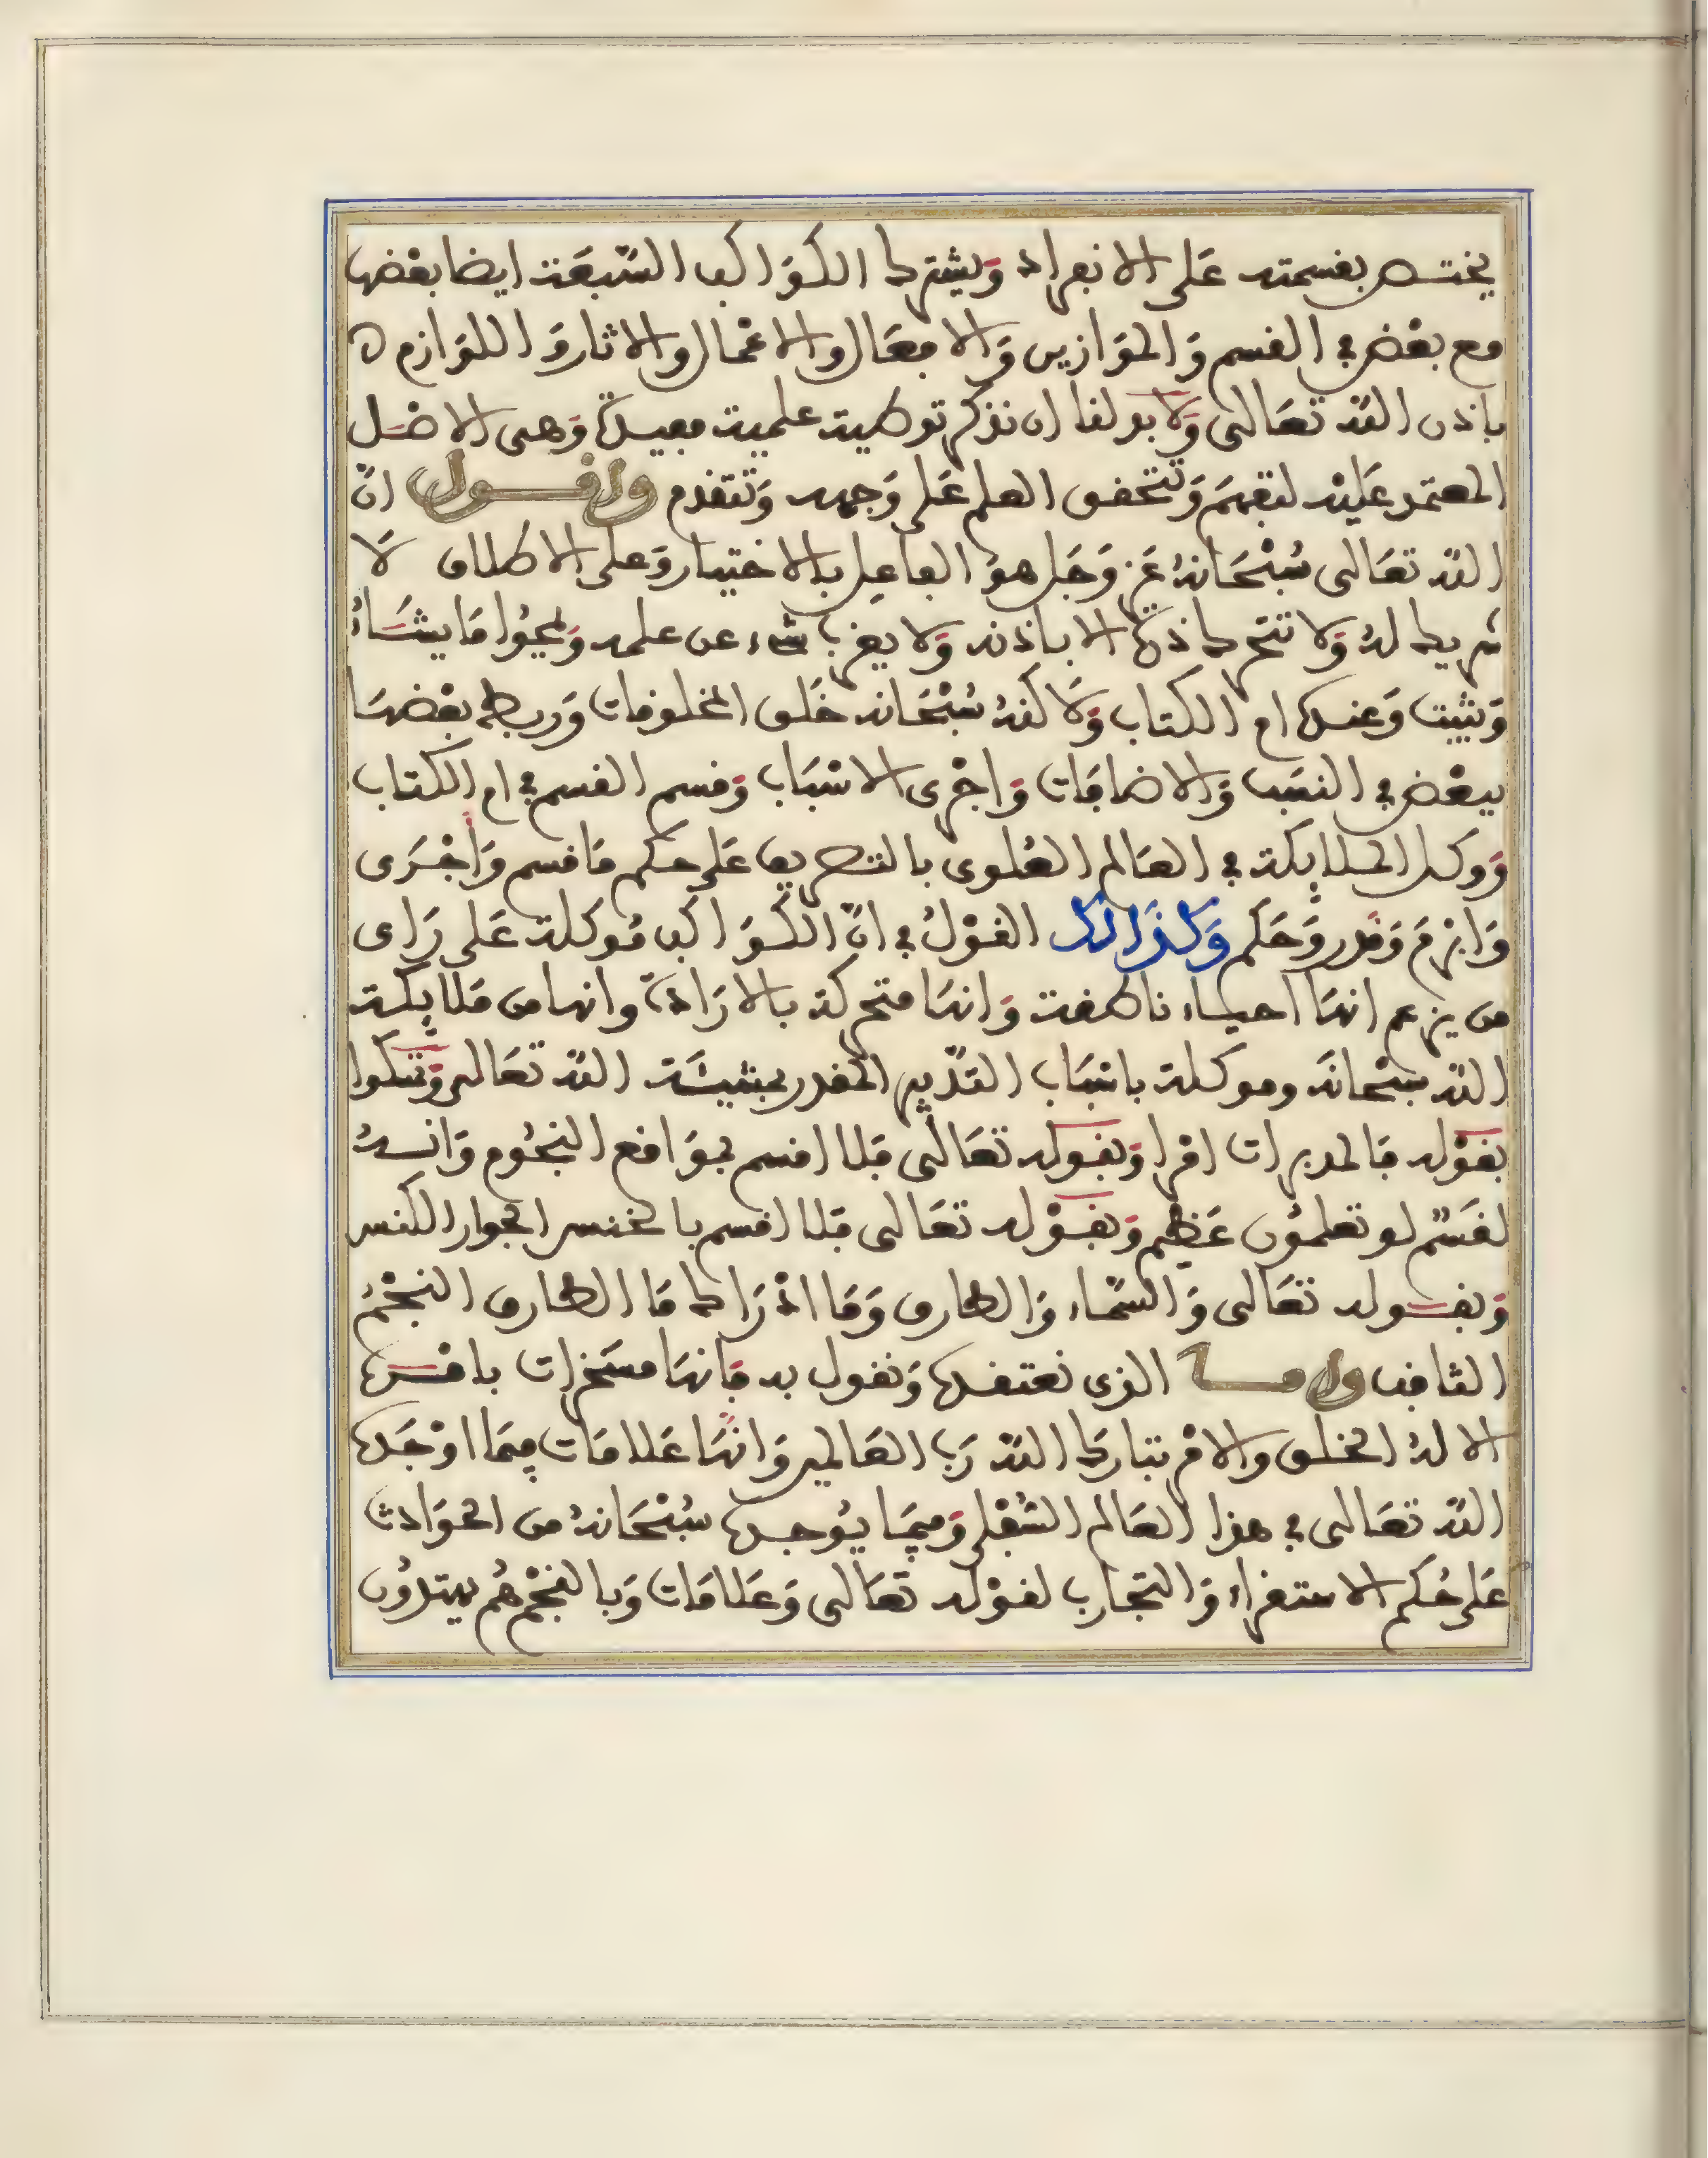 يختص بقسمته على الانفراد ويشترك الكواكب السّبعة ايضا بعضها
مع بعض في القسم والموازين والافعال والاعمال والاثار واللوازم
باذن الله تعالى ولابد لنا ان نذكر توطية علمية مفيدة وهى الاصل
المعتمد عليه لتفهم وتتحقق العلم على وجهه وتتقدم واقول انّ
الله تعالى سبحانهُ عز وجل هو الفاعل بالاختيار وعلى الاطلاق لا
شريك لهُ ولا تتحرك ذرة الا باذنه ولا يعزب شىء عن علمه ويمحوا ما يشاءُ
ويثبت وعنده ام الكتاب ولاكنهُ سبحانه خلق المخلوقات وربط بعضها
ببعض في النسب والاضافات واجرى الاسباب وقسم القسم في ام الكتاب
ووكل الملايكة في العالم العلوى بالتصريف على حكم ما قسم واجرى
وابرم وقدر وحكم وكذالك القولُ في انّ الكواكب موكلة على راى
من يزعم انها احياء ناطقة وانها متحركة بالارادة وانها من ملايكة
الله سبحانه وموكلة باسباب التدبير المقدر بمشيئة الله تعالى وتمسكوا
بقوله فالمدبرات امرا وبقوله تعالى فلا اقسم بمواقع النجوم وانهُ
لقسمٌ لو تعلمون عظيم وبقوله تعالى فلا اقسم بالخنس الجوار الكنس
وبقوله تعالى والسّماء والطارق وما ادراك ما الطارق النجمُ
الثاقب واما الذى نعتقده ونقول به فانها مسخرات بامره
الا لهُ الخلق والامر تبارك الله رب العالمين وانها علامات فيما اوجده
الله تعالى في هذا العالم السّفلى وفيما يوجده سبحانهُ من الحوادث
على حُكم الاستقراء والتجارب لقوله تعالى وعلامات وبالنجم هُم يهتدُون